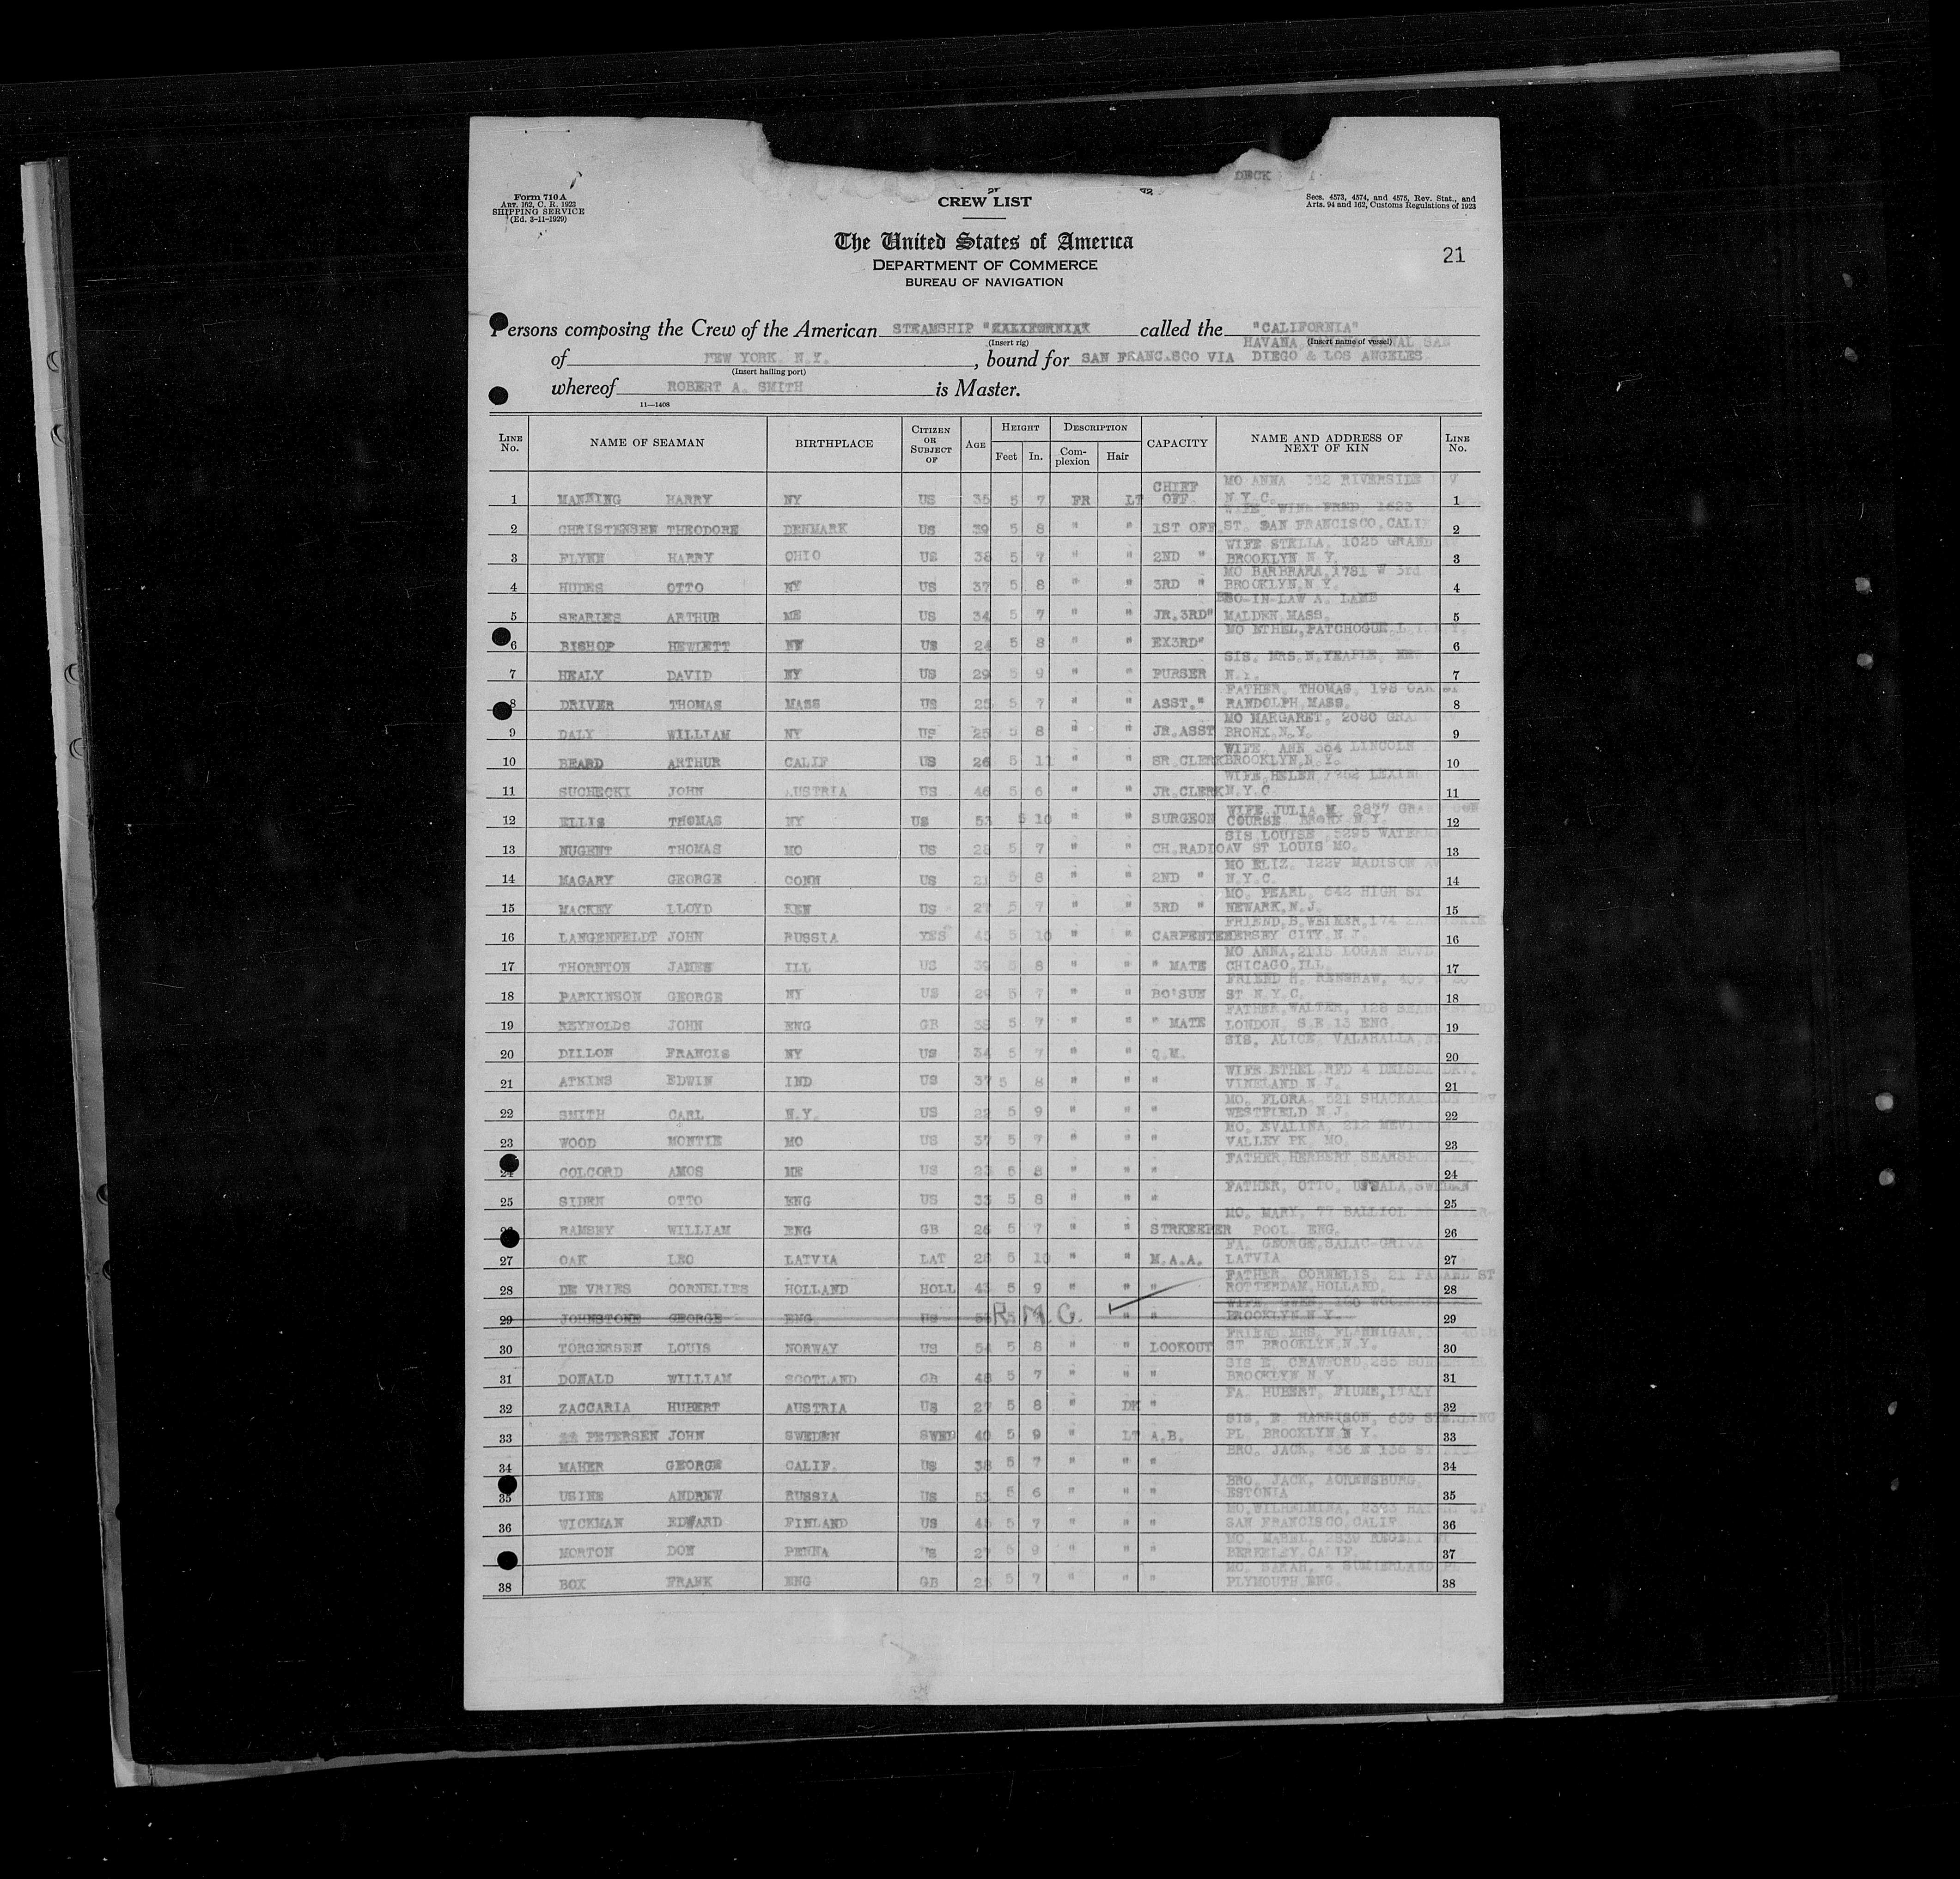 DECK
Form 710 A
ART. 162, C. R. 1923
SHIPPING SERVICE
(Ed. 3-11-1929)
CREW LIST
Secs. 4573, 4574, and 4575, Rev. Stat., and
Arts. 94 and 162, Customs Regulations of 1923
The United States of America
DEPARTMENT OF COMMERCE
BUREAU OF NAVIGATION
21
Persons composing the Crew of the American STEAMSHIP "CALIFORNIA" called the "CALIFORNIA"
(Insert rig) (Insert name of vessel)
HAVANA, CANAL SAN
of NEW YORK, N.Y., bound for SAN FRANCISCO VIA DIEGO & LOS ANGELES
(Insert hailing port)
whereof ROBERT A. SMITH is Master.
11—1408
LINE No. NAME OF SEAMAN BIRTHPLACE CITIZEN OR SUBJECT OF AGE HEIGHT Feet In. DESCRIPTION Complexion Hair CAPACITY NAME AND ADDRESS OF NEXT OF KIN LINE No.
1 MANNING HARRY NY US 35 5 7 FR LT CHIEF OFF. MO ANNA 362 RIVERSIDE N.Y.C. 1
2 CHRISTENSEN THEODORE DENMARK US 39 5 8 " " 1ST OFF. WIFE, 1623 ST. SAN FRANCISCO, CALIF 2
3 FLYNN HARRY OHIO US 38 5 7 " " 2ND " WIFE STELLA, 1025 GRAND BROOKLYN N Y. 3
4 HUDES OTTO NY US 37 5 8 " " 3RD " MO BARBRARA, 1781 W 3rd BROOKLYN, N.Y. 4
5 SEARIES ARTHUR ME US 34 5 7 " " JR. 3RD" BRO-IN-LAW A. LAMB MALDEN MASS. 5
6 BISHOP HEWLETT NY US 24 5 8 " " EX3RD" MO ETHEL, PATCHOGUE, 6
7 HEALY DAVID NY US 29 5 9 " " PURSER SIS. MRS. N. YEAPLE, N.Y. 7
8 DRIVER THOMAS MASS US 25 5 7 " " ASST. " FATHER, THOMAS, 198 OAK RANDOLPH, MASS. 8
9 DALY WILLIAM NY US 25 5 8 " " JR. ASST MO MARGARET, 2080 GRAND BRONX, N.Y. 9
10 BEARD ARTHUR CALIF US 26 5 11 " " SR. CLERK WIFE, ANN 364 LINCOLN BROOKLYN, N.Y. 10
11 SUCHECKI JOHN AUSTRIA US 46 5 6 " " JR. CLERK WIFE, HELEN N.Y.C. 11
12 ELLIS THOMAS NY US 53 5 10 " " SURGEON WIFE JULIA M. 2877 GRAND COURSE BRONX N.Y. 12
13 NUGENT THOMAS MO US 28 5 7 " " CH. RADIO SIS LOUISE 5295 WATERMAN AV ST LOUIS MO. 13
14 MAGARY GEORGE CONN US 21 5 8 " " 2ND " MO ELIZ. 1229 MADISON AV N.Y.C. 14
15 MACKEY LLOYD KEN US 27 5 7 " " 3RD " MO. PEARL, 642 HIGH ST NEWARK, N.J. 15
16 LANGENFELDT JOHN RUSSIA YES 45 5 10 " " CARPENTER FRIEND, B. WEINER, 174 JERSEY CITY, N.J. 16
17 THORNTON JAMES ILL US 39 5 8 " " " MATE MO ANNA, 2115 LOGAN BLVD CHICAGO, ILL 17
18 PARKINSON GEORGE NY US 29 5 7 " " BO'SUN FRIEND H. RENSHAW, ST N.Y.C. 18
19 REYNOLDS JOHN ENG GB 38 5 7 " " " MATE FATHER, WALTER, 128 LONDON, S.E. 13 ENG. 19
20 DILLON FRANCIS NY US 34 5 7 " " Q.M. SIS. ALICE, VALAHALLA, 20
21 ATKINS EDWIN IND US 37 5 8 " " " WIFE ETHEL RFD 4 DELSEA DRV. VINELAND N.J. 21
22 SMITH CARL N.Y. US 22 5 9 " " " MO. FLORA, 521 SHACKAMAXON DRV WESTFIELD N.J. 22
23 WOOD MONTIE MO US 37 5 7 " " " MO. EVALINA, 212 VALLEY PK. MO. 23
24 COLCORD AMOS ME US 23 5 8 " " " FATHER HERBERT SEARSPORT 24
25 SIDEN OTTO ENG US 33 5 8 " " " FATHER, OTTO, UPSALA, SWEDEN 25
26 RAMSEY WILLIAM ENG GB 26 5 7 " " STRKEEPER MO. MARY, 77 BALLIOL POOL ENG. 26
27 OAK LEO LATVIA LAT 28 5 10 " " M.A.A. FA. GEORGE, SALAC-GRIVA LATVIA 27
28 DE VRIES CORNELIES HOLLAND HOLL 43 5 9 " " " FATHER, CORNELIS, 21 ST ROTTERDAM, HOLLAND. 28
29 JOHNSTONE GEORGE ENG. US R.M.G. " " WIFE, GWEN, 160 BROOKLYN N.Y. 29
30 TORGERSEN LOUIS NORWAY US 54 5 8 " " LOOKOUT FRIEND MRS. FLANNIGAN, ST. BROOKLYN, N.Y. 30
31 DONALD WILLIAM SCOTLAND GB 48 5 7 " " " SIS E. CRAWFORD, 285 BROOKLYN N Y 31
32 ZACCARIA HUBERT AUSTRIA US 27 5 8 " DK " FA. HUBERT, FIUME, ITALY 32
33 PETERSEN JOHN SWEDEN SWED 40 5 9 " LT A.B. SIS. E. HARRISON, 639 STERLING PL. BROOKLYN N Y. 33
34 MAHER GEORGE CALIF. US 38 5 7 " " " BRO. JACK, 436 E 136 ST 34
35 USINE ANDREW RUSSIA US 53 5 6 " " " BRO. JACK, AORENSBURG, ESTONIA 35
36 WICKMAN EDWARD FINLAND US 45 5 7 " " " MO, WILHELMINA, SAN FRANCISCO, CALIF. 36
MORTON DON PENNA US 27 5 9 " " " MO. MABEL, 2839 REGENT BERKELEY, CALIF. 37
38 BOX FRANK ENG GB 25 5 7 " " " MO. SARAH, 4 SUMMERLAND PLYMOUTH, ENG. 38